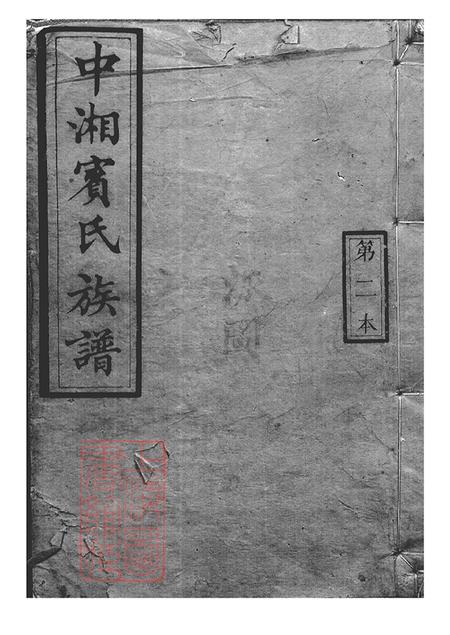 中湘賓氏族譜
第二本